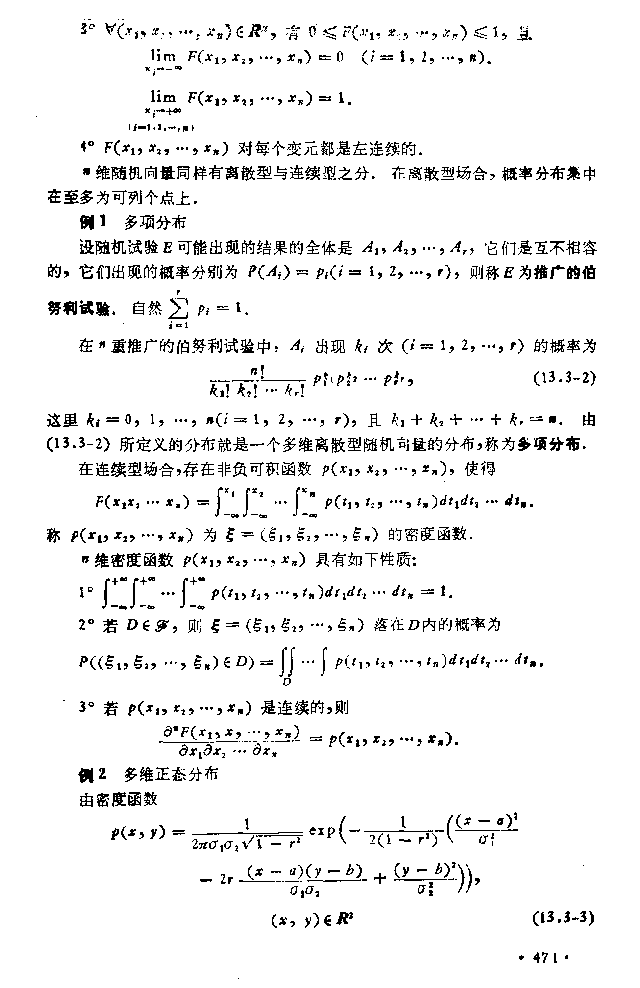 3° ∀(x₁, x₂, ⋯, xₙ)∈Rⁿ, 有 0≤F(x₁, x₂, ⋯, xₙ)≤1, 且
lim F(x₁, x₂, ⋯, xₙ) = 0 (i = 1, 2, ⋯, n).
xᵢ→−∞
lim F(x₁, x₂, ⋯, xₙ) = 1.
xᵢ→+∞
(i=1,2,⋯,n)
4° F(x₁, x₂, ⋯, xₙ) 对每个变元都是左连续的.
n 维随机向量同样有离散型与连续型之分. 在离散型场合, 概率分布集中
在至多为可列个点上.
例 1 多项分布
设随机试验 E 可能出现的结果的全体是 A₁, A₂, ⋯, Aᵣ, 它们是互不相容
的, 它们出现的概率分别为 P(Aᵢ) = pᵢ(i = 1, 2, ⋯, r), 则称 E 为推广的伯
努利试验. 自然 ∑ᵢ₌₁ʳ pᵢ = 1.
在 n 重推广的伯努利试验中, Aᵢ 出现 kᵢ 次 (i = 1, 2, ⋯, r) 的概率为
n!/(k₁! k₂! ⋯ kᵣ!) p₁^k₁ p₂^k₂ ⋯ pᵣ^kᵣ, (13.3-2)
这里 kᵢ = 0, 1, ⋯, n(i = 1, 2, ⋯, r), 且 k₁ + k₂ + ⋯ + kᵣ = n. 由
(13.3-2) 所定义的分布就是一个多维离散型随机向量的分布, 称为多项分布.
在连续型场合, 存在非负可积函数 p(x₁, x₂, ⋯, xₙ), 使得
F(x₁x₂ ⋯ xₙ) = ∫₋∞^x₁ ∫₋∞^x₂ ⋯ ∫₋∞^xₙ p(t₁, t₂, ⋯, tₙ)dt₁dt₂ ⋯ dtₙ.
称 p(x₁, x₂, ⋯, xₙ) 为 ξ = (ξ₁, ξ₂, ⋯, ξₙ) 的密度函数.
n 维密度函数 p(x₁, x₂, ⋯, xₙ) 具有如下性质:
1° ∫₋∞^+∞ ∫₋∞^+∞ ⋯ ∫₋∞^+∞ p(t₁, t₂, ⋯, tₙ)dt₁dt₂ ⋯ dtₙ = 1.
2° 若 D∈ℬ, 则 ξ = (ξ₁, ξ₂, ⋯, ξₙ) 落在D内的概率为
P((ξ₁, ξ₂, ⋯, ξₙ)∈D) = ∬⋯∫_D p(t₁, t₂, ⋯, tₙ)dt₁dt₂ ⋯ dtₙ.
3° 若 p(x₁, x₂, ⋯, xₙ) 是连续的, 则
∂ⁿF(x₁, x₂, ⋯, xₙ)/(∂x₁∂x₂ ⋯ ∂xₙ) = p(x₁, x₂, ⋯, xₙ).
例 2 多维正态分布
由密度函数
p(x, y) = 1/(2πσ₁σ₂√(1 − r²)) exp(− 1/(2(1 − r²)) ((x − a)²/σ₁²
− 2r (x − a)(y − b)/(σ₁σ₂) + (y − b)²/σ₂²)),
(x, y)∈R² (13.3-3)
· 471 ·